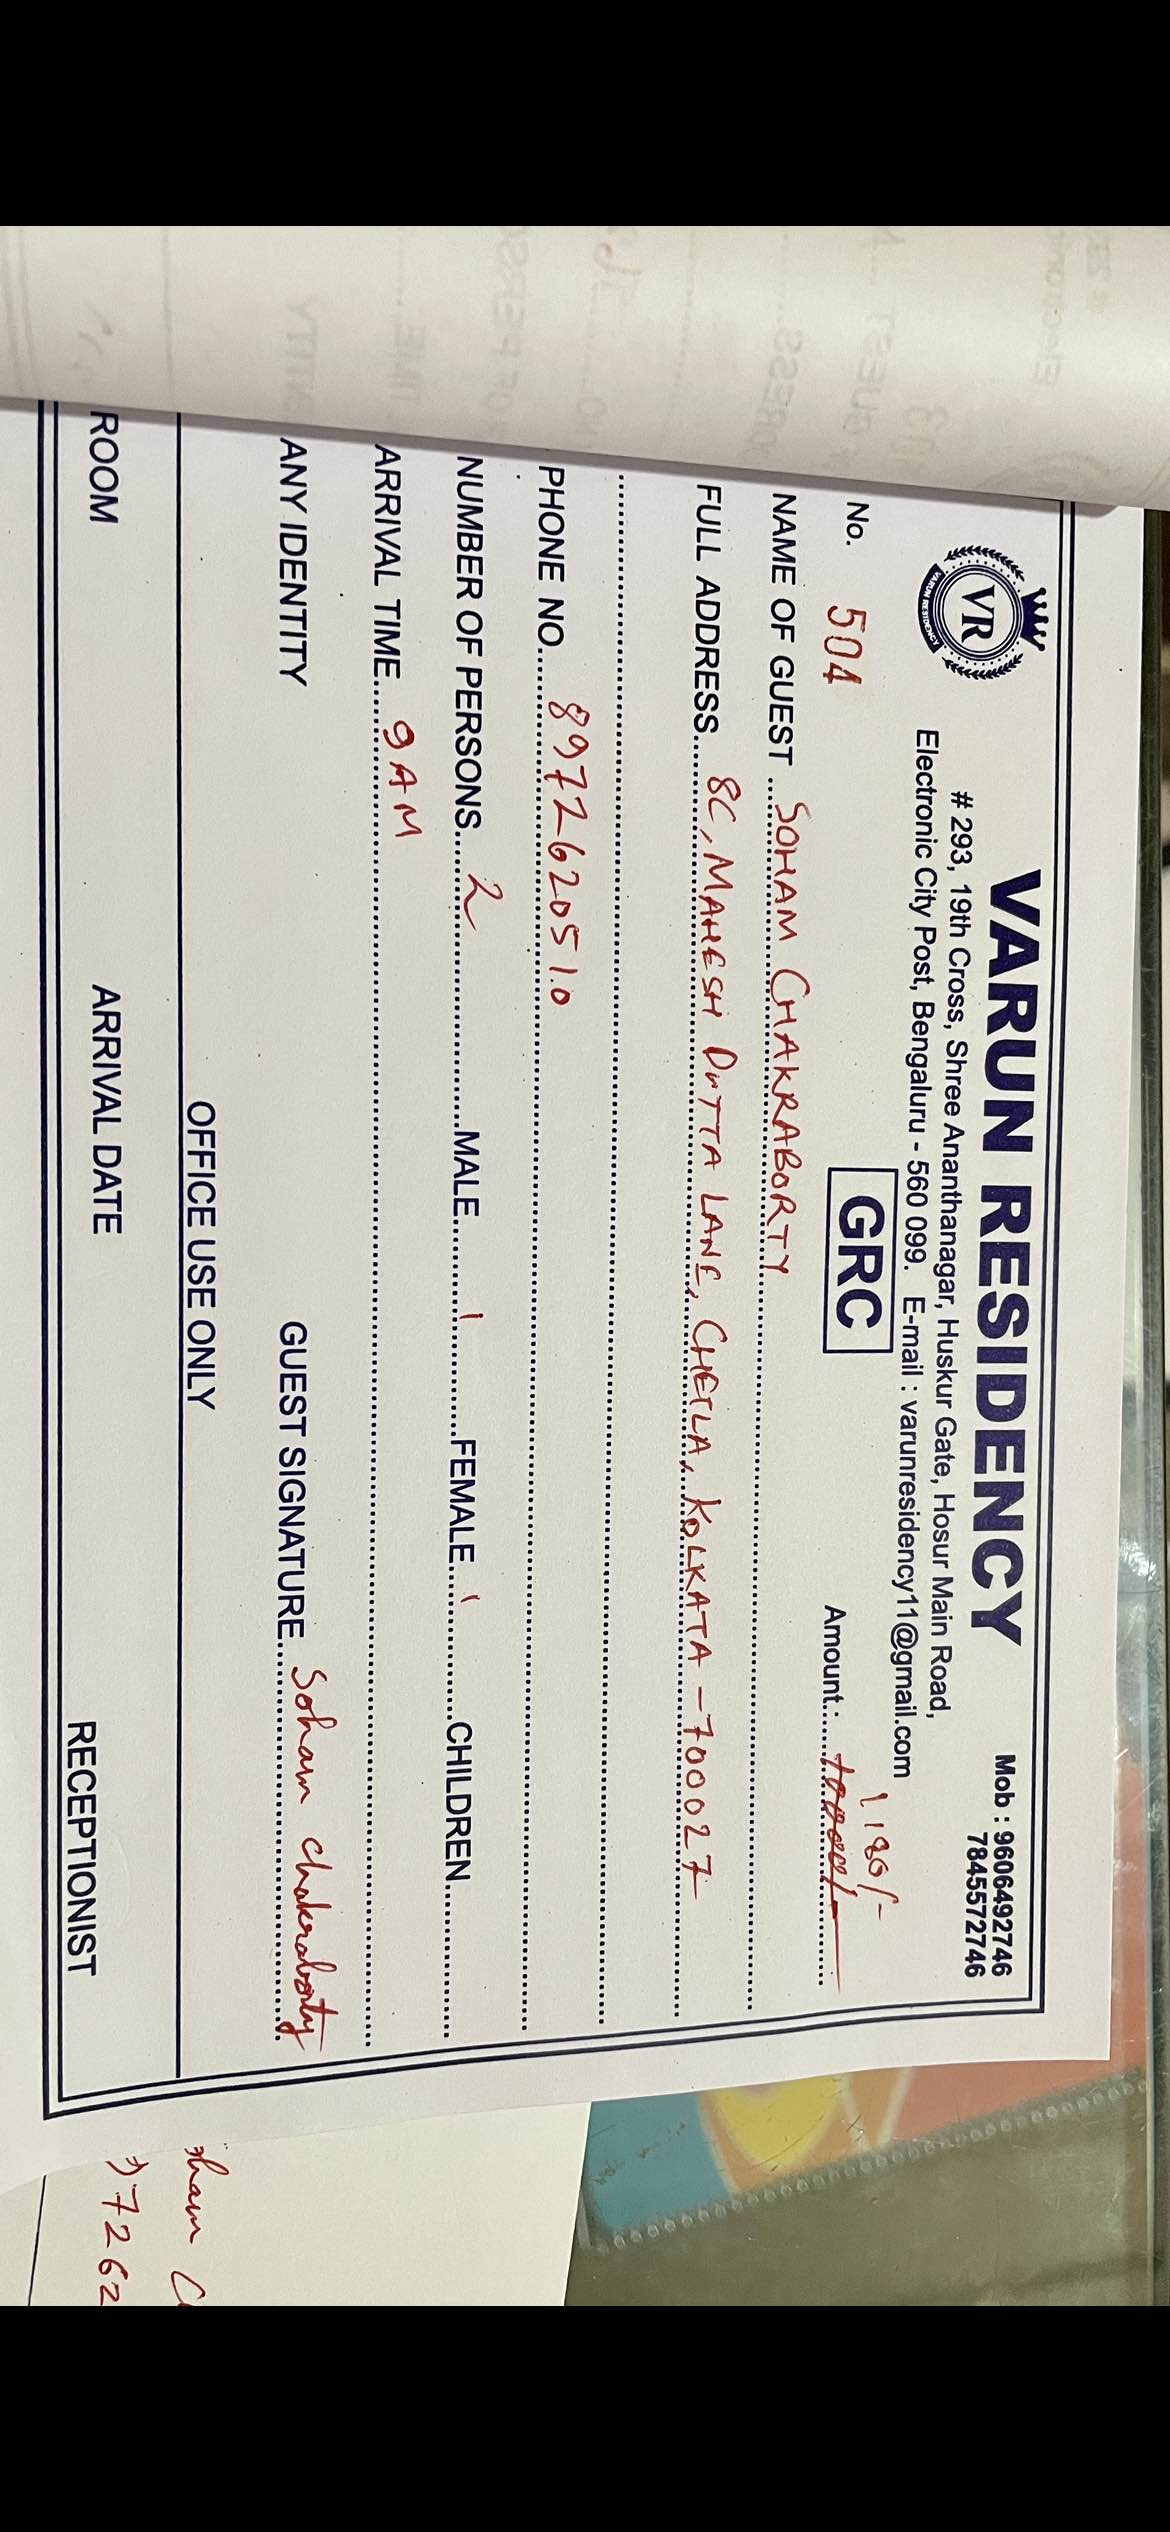 VARUN RESIDENCY
Mob : 9606492746
7845572746
# 293, 19th Cross, Shree Ananthanagar, Huskur Gate, Hosur Main Road,
Electronic City Post, Bengaluru - 560 099. E-mail : varunresidency11@gmail.com
VR
VARUN RESIDENCY
No. 504 GRC Amount: 1180/-
NAME OF GUEST SOHAM CHAKRABORTY
FULL ADDRESS 8C, MAHESH DUTTA LANE, CHETLA, KOLKATA - 700027
PHONE NO. 8972620510
NUMBER OF PERSONS 2 MALE 1 FEMALE 1 CHILDREN
ARRIVAL TIME 9 AM
ANY IDENTITY GUEST SIGNATURE Soham Chakraborty
OFFICE USE ONLY
ROOM ARRIVAL DATE RECEPTIONIST